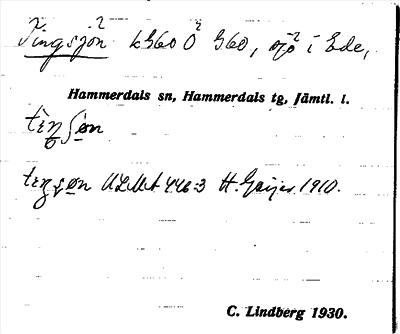 Tingsjön k 360 Ö² 360, sjö² i Ede,
Hammerdals sn, Hammerdals tg, Jämtl. l.
ULMA 446:3 H. Geijer 1910.
C. Lindberg 1930.